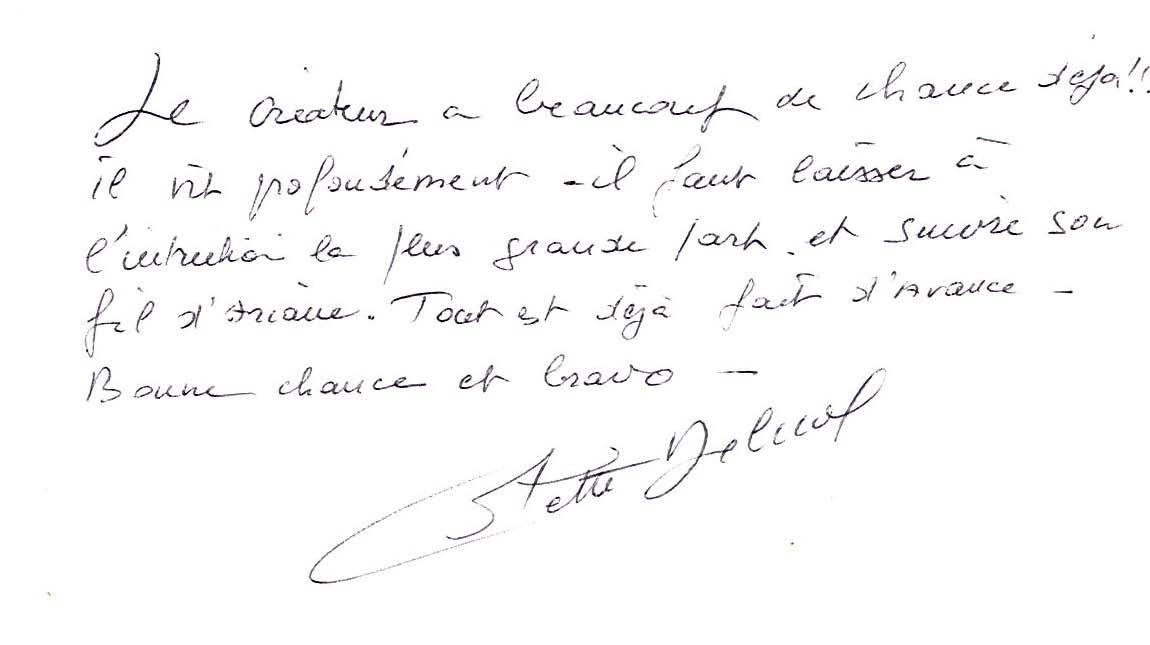 Le créateur a beaucoup de chance déjà!!
il vit profondément - il faut laisser à
l'intuition la plus grande part et suivre son
fil d'Ariane. Tout est déjà fait d'avance -
Bonne chance et bravo -